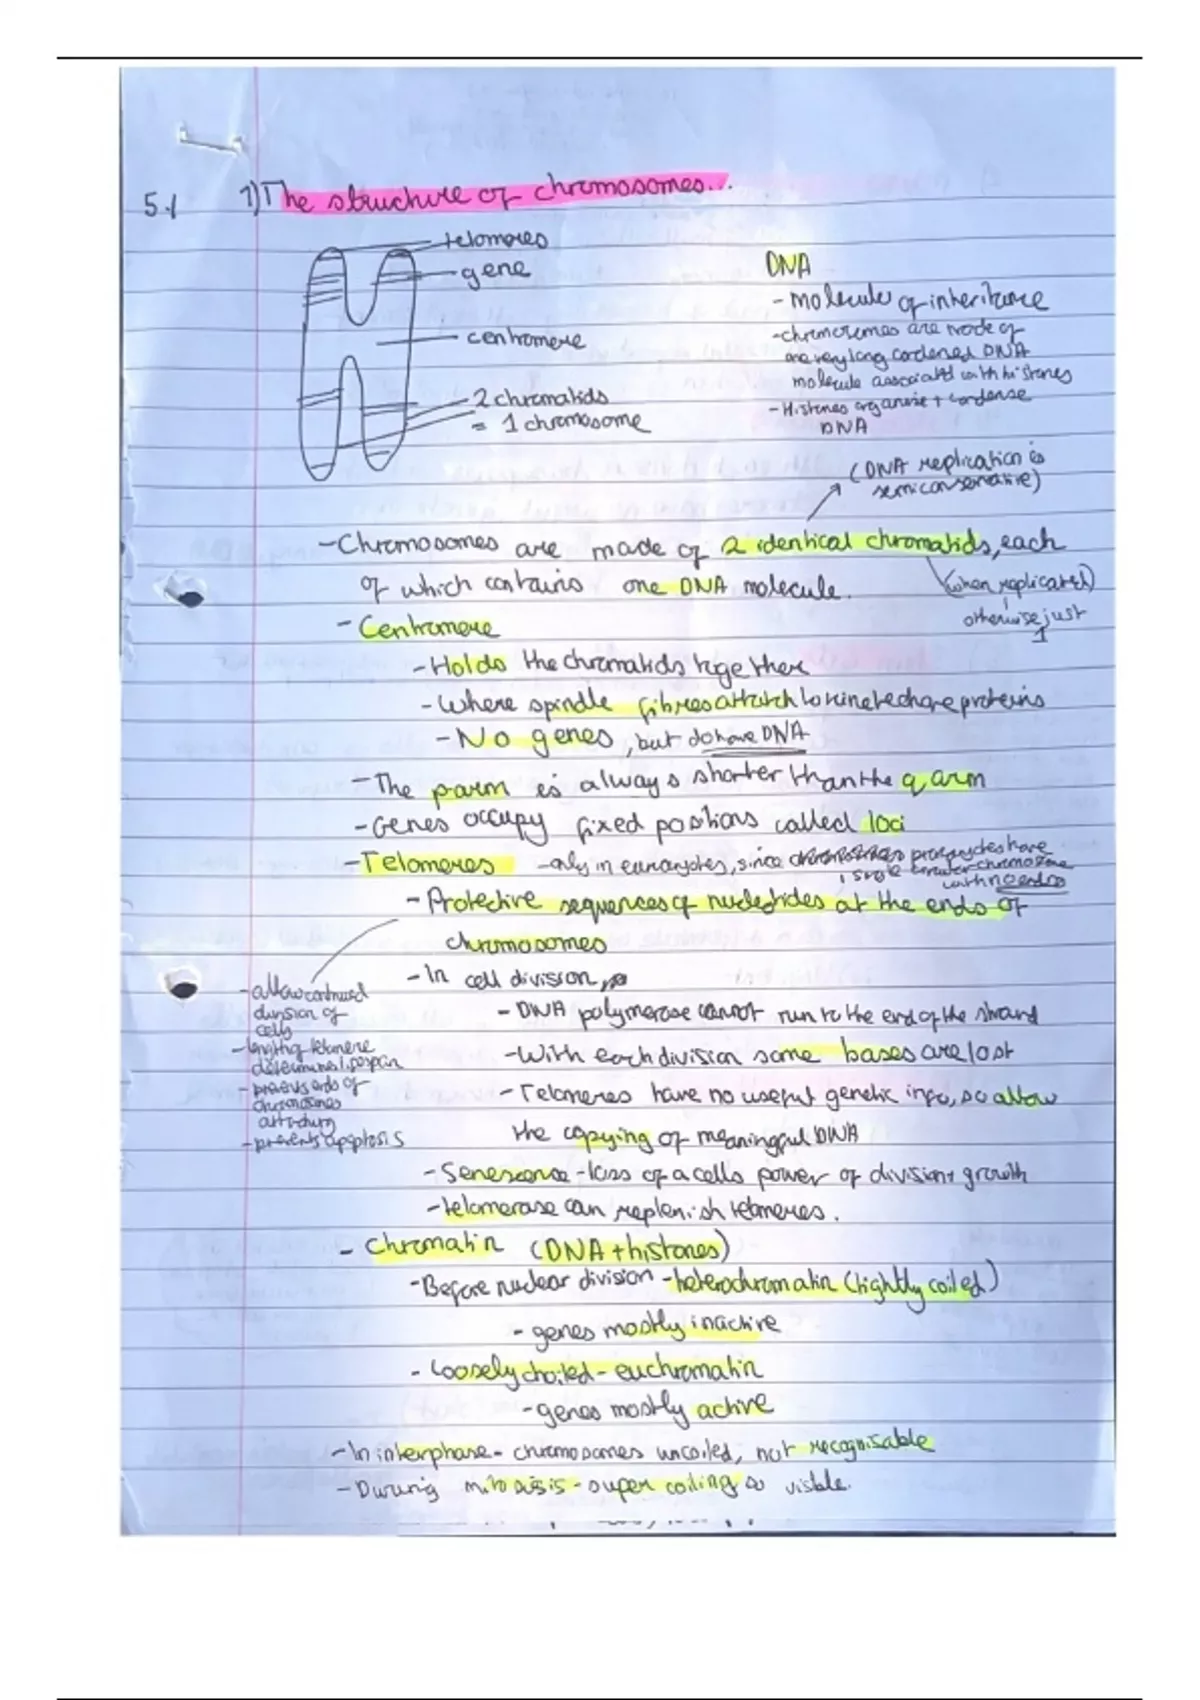 5.1 1) The structure of chromosomes...
telomeres
gene
centromere
2 chromatids
= 1 chromosome
DNA
- molecule of inheritance
- chromosomes are made of
one very long condensed DNA
molecule associated with histones
- Histones organise + condense
DNA
(DNA replication is
semiconservative)
- Chromosomes are made of 2 identical chromatids, each
of which contains one DNA molecule.
(when replicated)
otherwise just
1
- Centromere
- Holds the chromatids together
- Where spindle fibres attatch to kinetechore proteins
- No genes, but do have DNA
- The p arm is always shorter than the q arm
- Genes occupy fixed postions called loci
- Telomeres - only in eucaryotes, since prokaryotes have
1 single circular chromosome
with no ends
- Protective sequences of nucleotides at the ends of
chromosomes
- allow continued
division of
cells
- length of telomere
determines lifespan
- prevents ends of
chromosomes
- prevents apoptosis
- In cell division,
- DNA polymerase cannot run to the end of the strand
- With each division some bases are lost
- Telomeres have no useful genetic info, so allow
the copying of meaningful DNA
- Senescence - loss of a cells power of division + growth
- telomerase can replenish telomeres.
- Chromatin (DNA + histones)
- Before nuclear division - heterochromatin (tightly coiled)
- genes mostly inactive
- Loosely choiled - euchromatin
- genes mostly active
- In interphase - chromosomes uncoiled, not recognisable
- During mitosis - super coiling so visible.